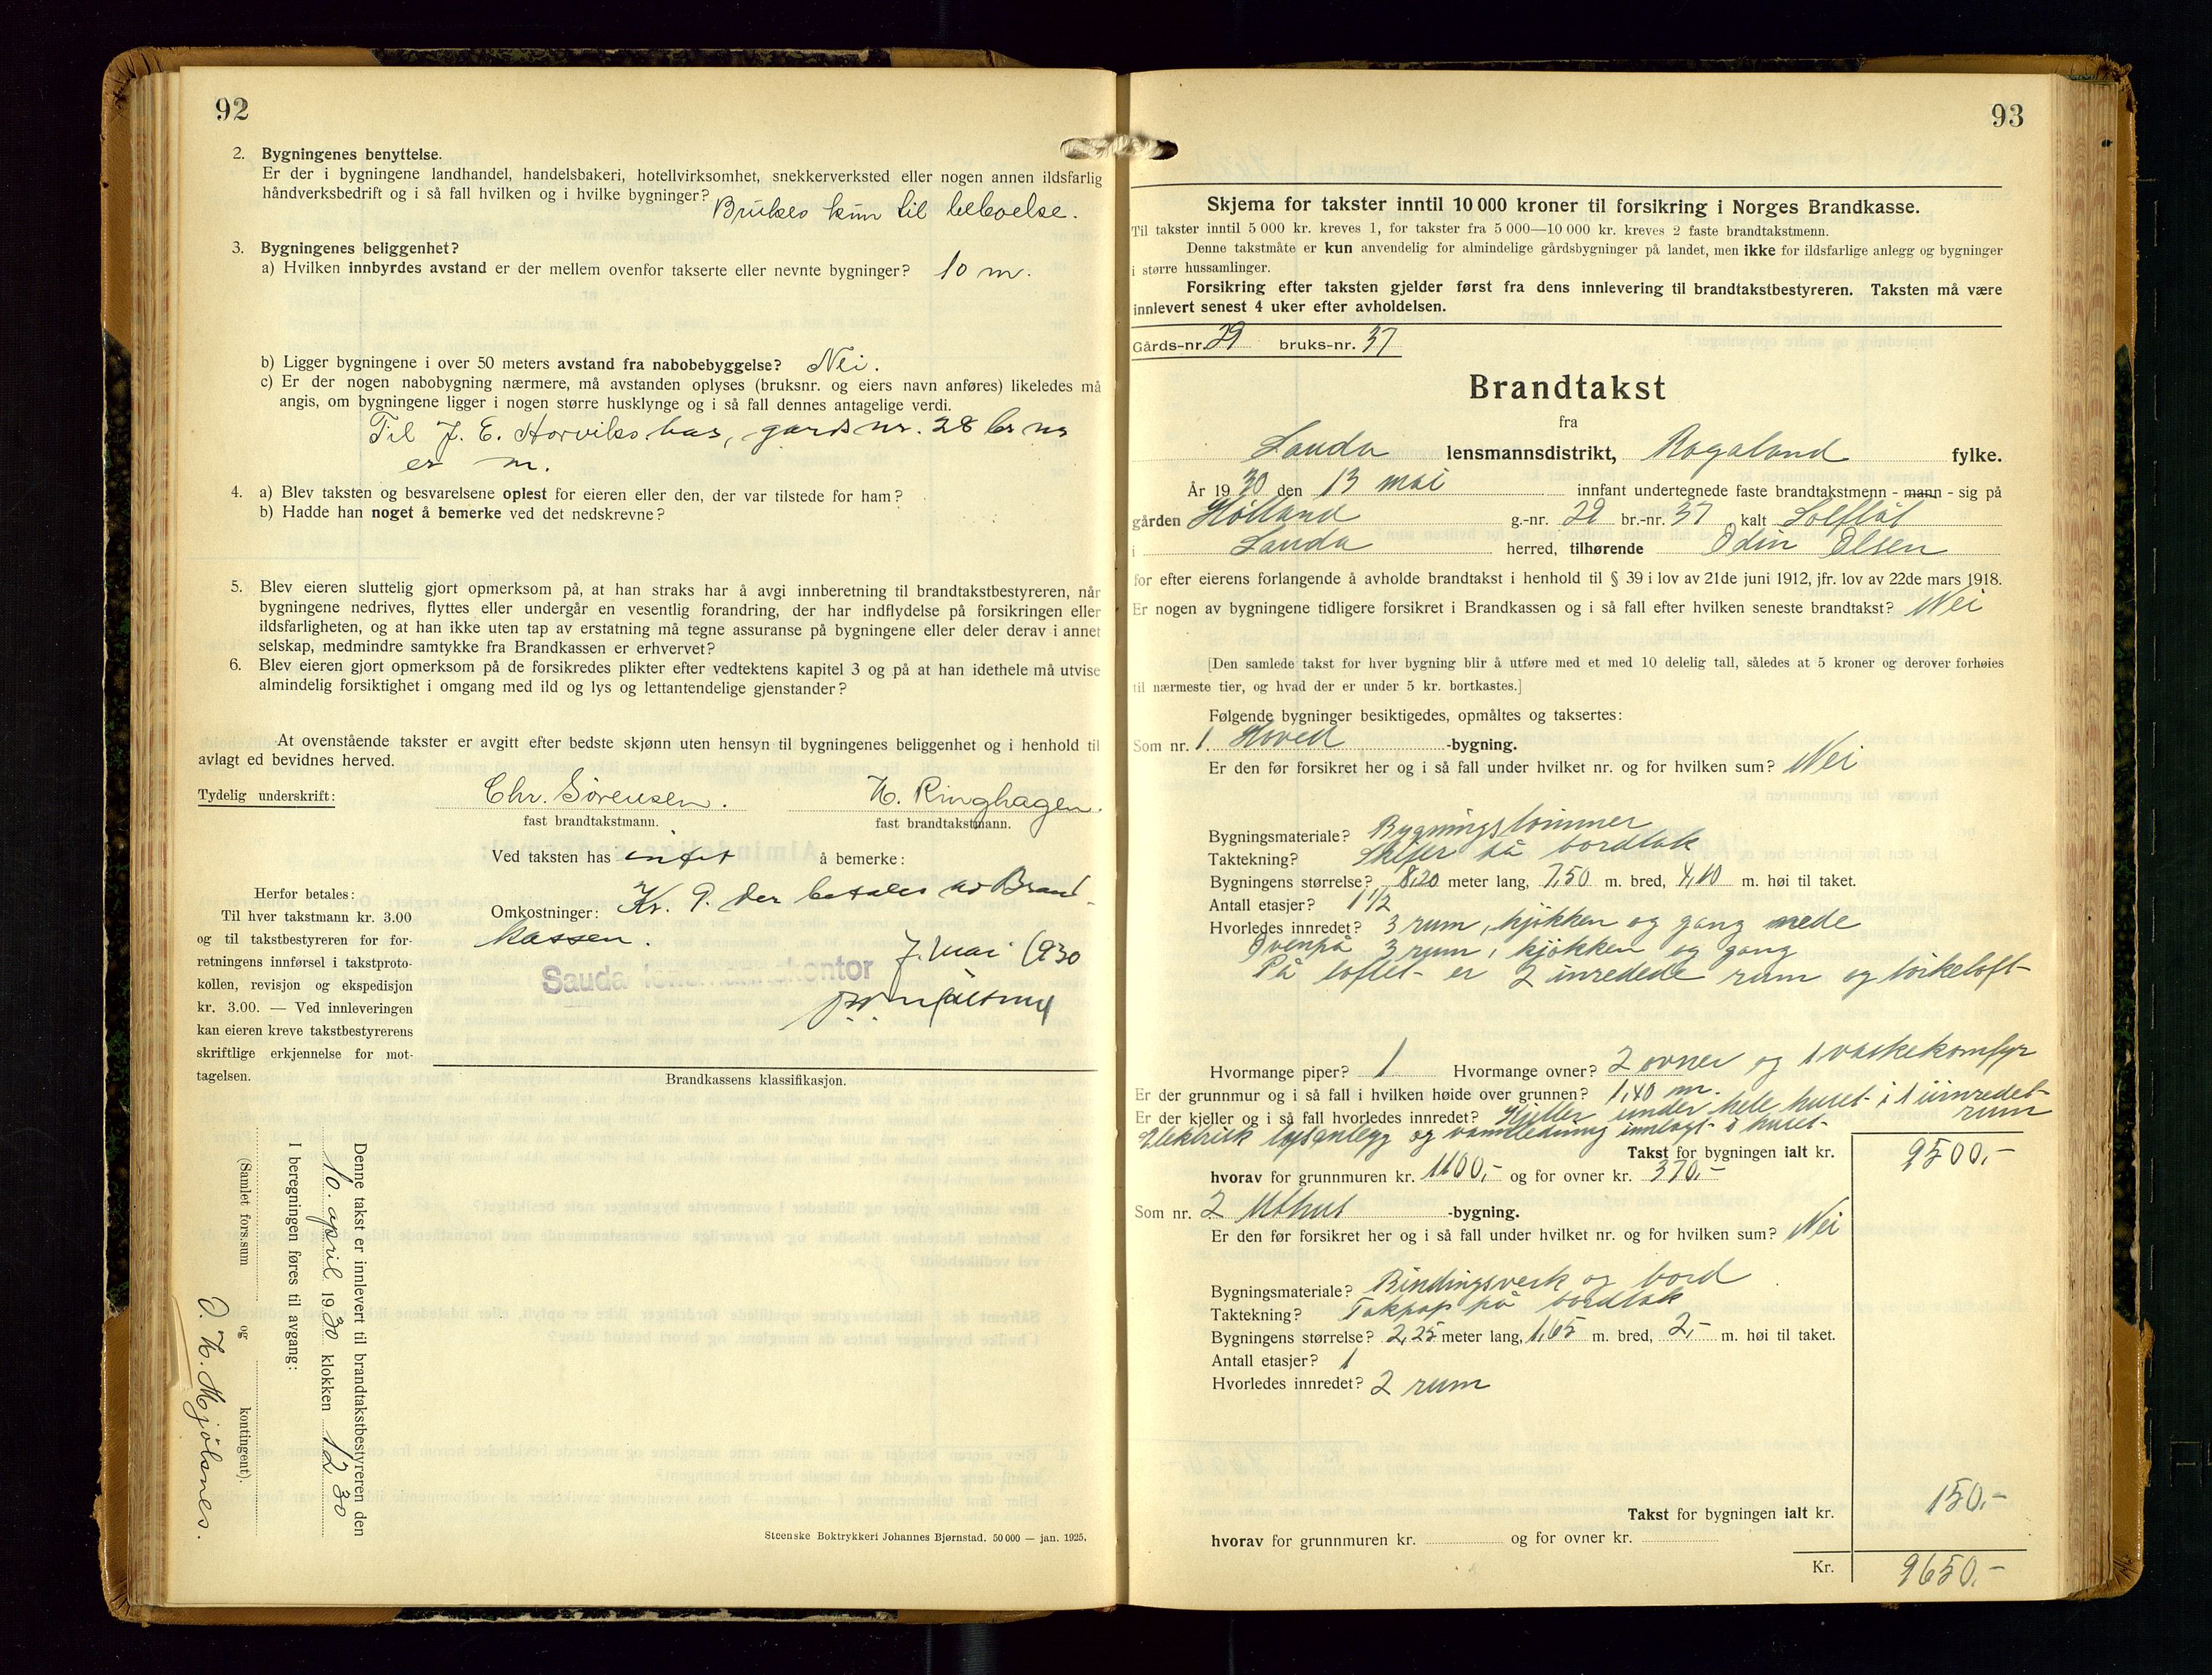 92
2. Bygningenes benyttelse.
Er der i bygningene landhandel, handelsbakeri, hotellvirksomhet, snekkerverksted eller nogen annen ildsfarlig
håndverksbedrift og i så fall hvilken og i hvilke bygninger? Brukes kun til beboelse.
3. Bygningenes beliggenhet?
a) Hvilken innbyrdes avstand er der mellem ovenfor takserte eller nevnte bygninger? 10 m.
b) Ligger bygningene i over 50 meters avstand fra nabobebyggelse? Nei.
c) Er der nogen nabobygning nærmere, må avstanden oplyses (bruksnr. og eiers navn anføres) likeledes må
angis, om bygningene ligger i nogen større husklynge og i så fall dennes antagelige verdi.
Til J. E. Horviks hus, gards nr. 28 br nr
er m.
4. a) Blev taksten og besvarelsene oplest for eieren eller den, der var tilstede for ham?
b) Hadde han noget å bemerke ved det nedskrevne?
5. Blev eieren sluttelig gjort opmerksom på, at han straks har å avgi innberetning til brandtakstbestyreren, når
bygningene nedrives, flyttes eller undergår en vesentlig forandring, der har indflydelse på forsikringen eller
ildsfarligheten, og at han ikke uten tap av erstatning må tegne assuranse på bygningene eller deler derav i annet
selskap, medmindre samtykke fra Brandkassen er erhvervet?
6. Blev eieren gjort opmerksom på de forsikredes plikter efter vedtektens kapitel 3 og på at han idethele må utvise
almindelig forsiktighet i omgang med ild og lys og lettantendelige gjenstander?
At ovenstående takster er avgitt efter bedste skjønn uten hensyn til bygningenes beliggenhet og i henhold til
avlagt ed bevidnes herved.
Tydelig underskrift: Chr. Sörensen. H. Ringhagen.
fast brandtakstmann. fast brandtakstmann.
Ved taksten has intet å bemerke:
Omkostninger: Kr. 9. der betales av Brand-
kassen.
7. mai 1930
Sauda lensmannskontor
Herfor betales:
Til hver takstmann kr. 3.00
og til takstbestyreren for for-
retningens innførsel i takstproto-
kollen, revisjon og ekspedisjon
kr. 3.00. — Ved innleveringen
kan eieren kreve takstbestyrerens
skriftlige erkjennelse for mot-
tagelsen.
Brandkassens klassifikasjon.
Denne takst er innlevert til brandtakstbestyreren den
10. april 1930 klokken 12 30
I beregningen føres til avgang:
(Samlet fors.sum og kontingent).
O. H. Mjölsnes.
Steenske Boktrykkeri Johannes Bjørnstad. 50 000 — jan. 1925.
93
Skjema for takster inntil 10 000 kroner til forsikring i Norges Brandkasse.
Til takster inntil 5 000 kr. kreves 1, for takster fra 5 000—10 000 kr. kreves 2 faste brandtakstmenn.
Denne takstmåte er kun anvendelig for almindelige gårdsbygninger på landet, men ikke for ildsfarlige anlegg og bygninger
i større hussamlinger.
Forsikring efter taksten gjelder først fra dens innlevering til brandtakstbestyreren. Taksten må være
innlevert senest 4 uker efter avholdelsen.
Gårds-nr. 29 bruks-nr. 37
Brandtakst
fra
Sauda lensmannsdistrikt, Rogaland fylke.
År 1930 den 13 mai innfant undertegnede faste brandtakstmenn - mann - sig på
gården Hölland g.-nr. 29 br.-nr. 37, kalt
i Sauda herred, tilhørende Odin Olsen
for efter eierens forlangende å avholde brandtakst i henhold til § 39 i lov av 21de juni 1912, jfr. lov av 22de mars 1918.
Er nogen av bygningene tidligere forsikret i Brandkassen og i så fall efter hvilken seneste brandtakst? Nei
[Den samlede takst for hver bygning blir å utføre med et med 10 delelig tall, således at 5 kroner og derover forhøies
til nærmeste tier, og hvad der er under 5 kr. bortkastes.]
Følgende bygninger besiktigedes, opmåltes og taksertes:
Som nr. 1. Hoved -bygning.
Er den før forsikret her og i så fall under hvilket nr. og for hvilken sum? Nei
Bygningsmateriale? Bygningstömmer
Taktekning? Skifer på bordtak
Bygningens størrelse? 8,20 meter lang, 7,50 m. bred, 4,40 m. høi til taket.
Antall etasjer? 1 1/2
Hvorledes innredet? 3 rum, kjökken og gang nede
Ovenpå 3 rum, kjökken og gang
På loftet er 2 inredede rum og törkeloft
Hvormange piper? 1 Hvormange ovner? 2 ovner og 1 vaskekomfyr
Er der grunnmur og i så fall i hvilken høide over grunnen? 1,40 m.
Er der kjeller og i så fall hvorledes innredet? Kjeller under hele huset i 1 uinredet
rum
Elektrisk lysanlegg og vannledning innlagt i huset
Takst for bygningen ialt kr. 9500,-
hvorav for grunnmuren kr. 1100,- og for ovner kr. 370,-
Som nr. 2 Uthus -bygning.
Er den før forsikret her og i så fall under hvilket nr. og for hvilken sum? Nei
Bygningsmateriale? Bindingsverk og bord
Taktekning? Takpap på bordtak
Bygningens størrelse? 2,25 meter lang, 1,65 m. bred, 2,- m. høi til taket.
Antall etasjer? 1
Hvorledes innredet? 2 rum
Takst for bygningen ialt kr. 150,-
hvorav for grunnmuren kr. og for ovner kr.
Kr. 9650,-